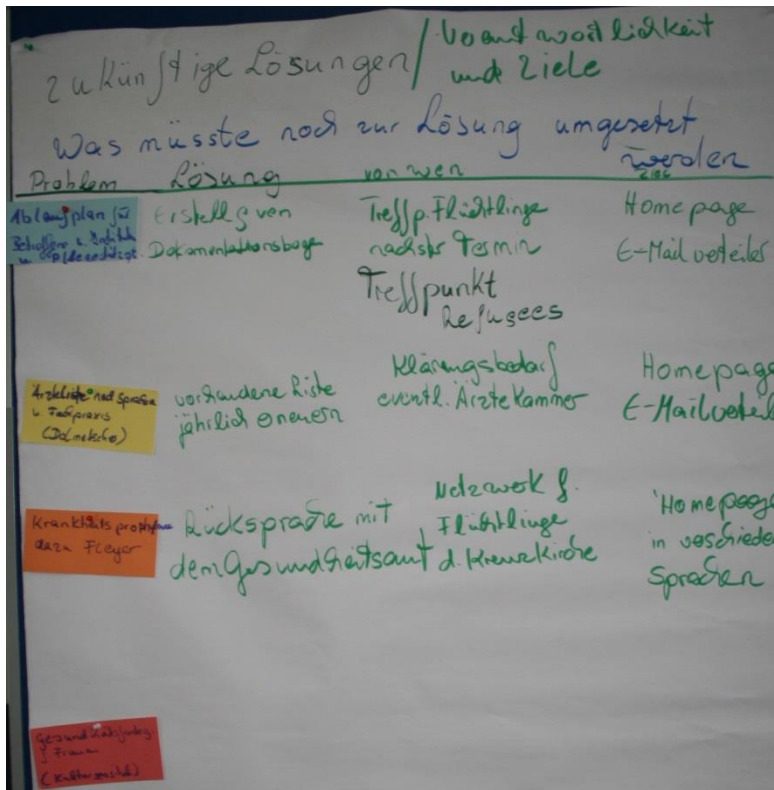 zukünftige Lösungen/ Verantwortlichkeit
und Ziele
Was müsste noch zur Lösung umgesetzt
werden
Problem Lösung von wen Ziel
Ablaufplan für
Erstellg von
Dokumentationsboge
Treffp. Flüchtlinge
nächster Termin
Treffpunkt
Refugees
Homepage
E-Mail verteiler
Ärzteliste nach Sprachen
u. Fachpraxis
(Dolmetscher)
vorhandene Liste
jährlich erneuern
Klärungsbedarf
eventl. Ärzte Kammer
Homepage
E-Mail verteil
Krankheitsprophylaxe
dazu Fleyer
Rücksprache mit
dem Gesundheitsamt
Netzwerk f.
Flüchtlinge
d. Kreuzkirche
Homepage
in verschieden
Sprachen
f. Frauen